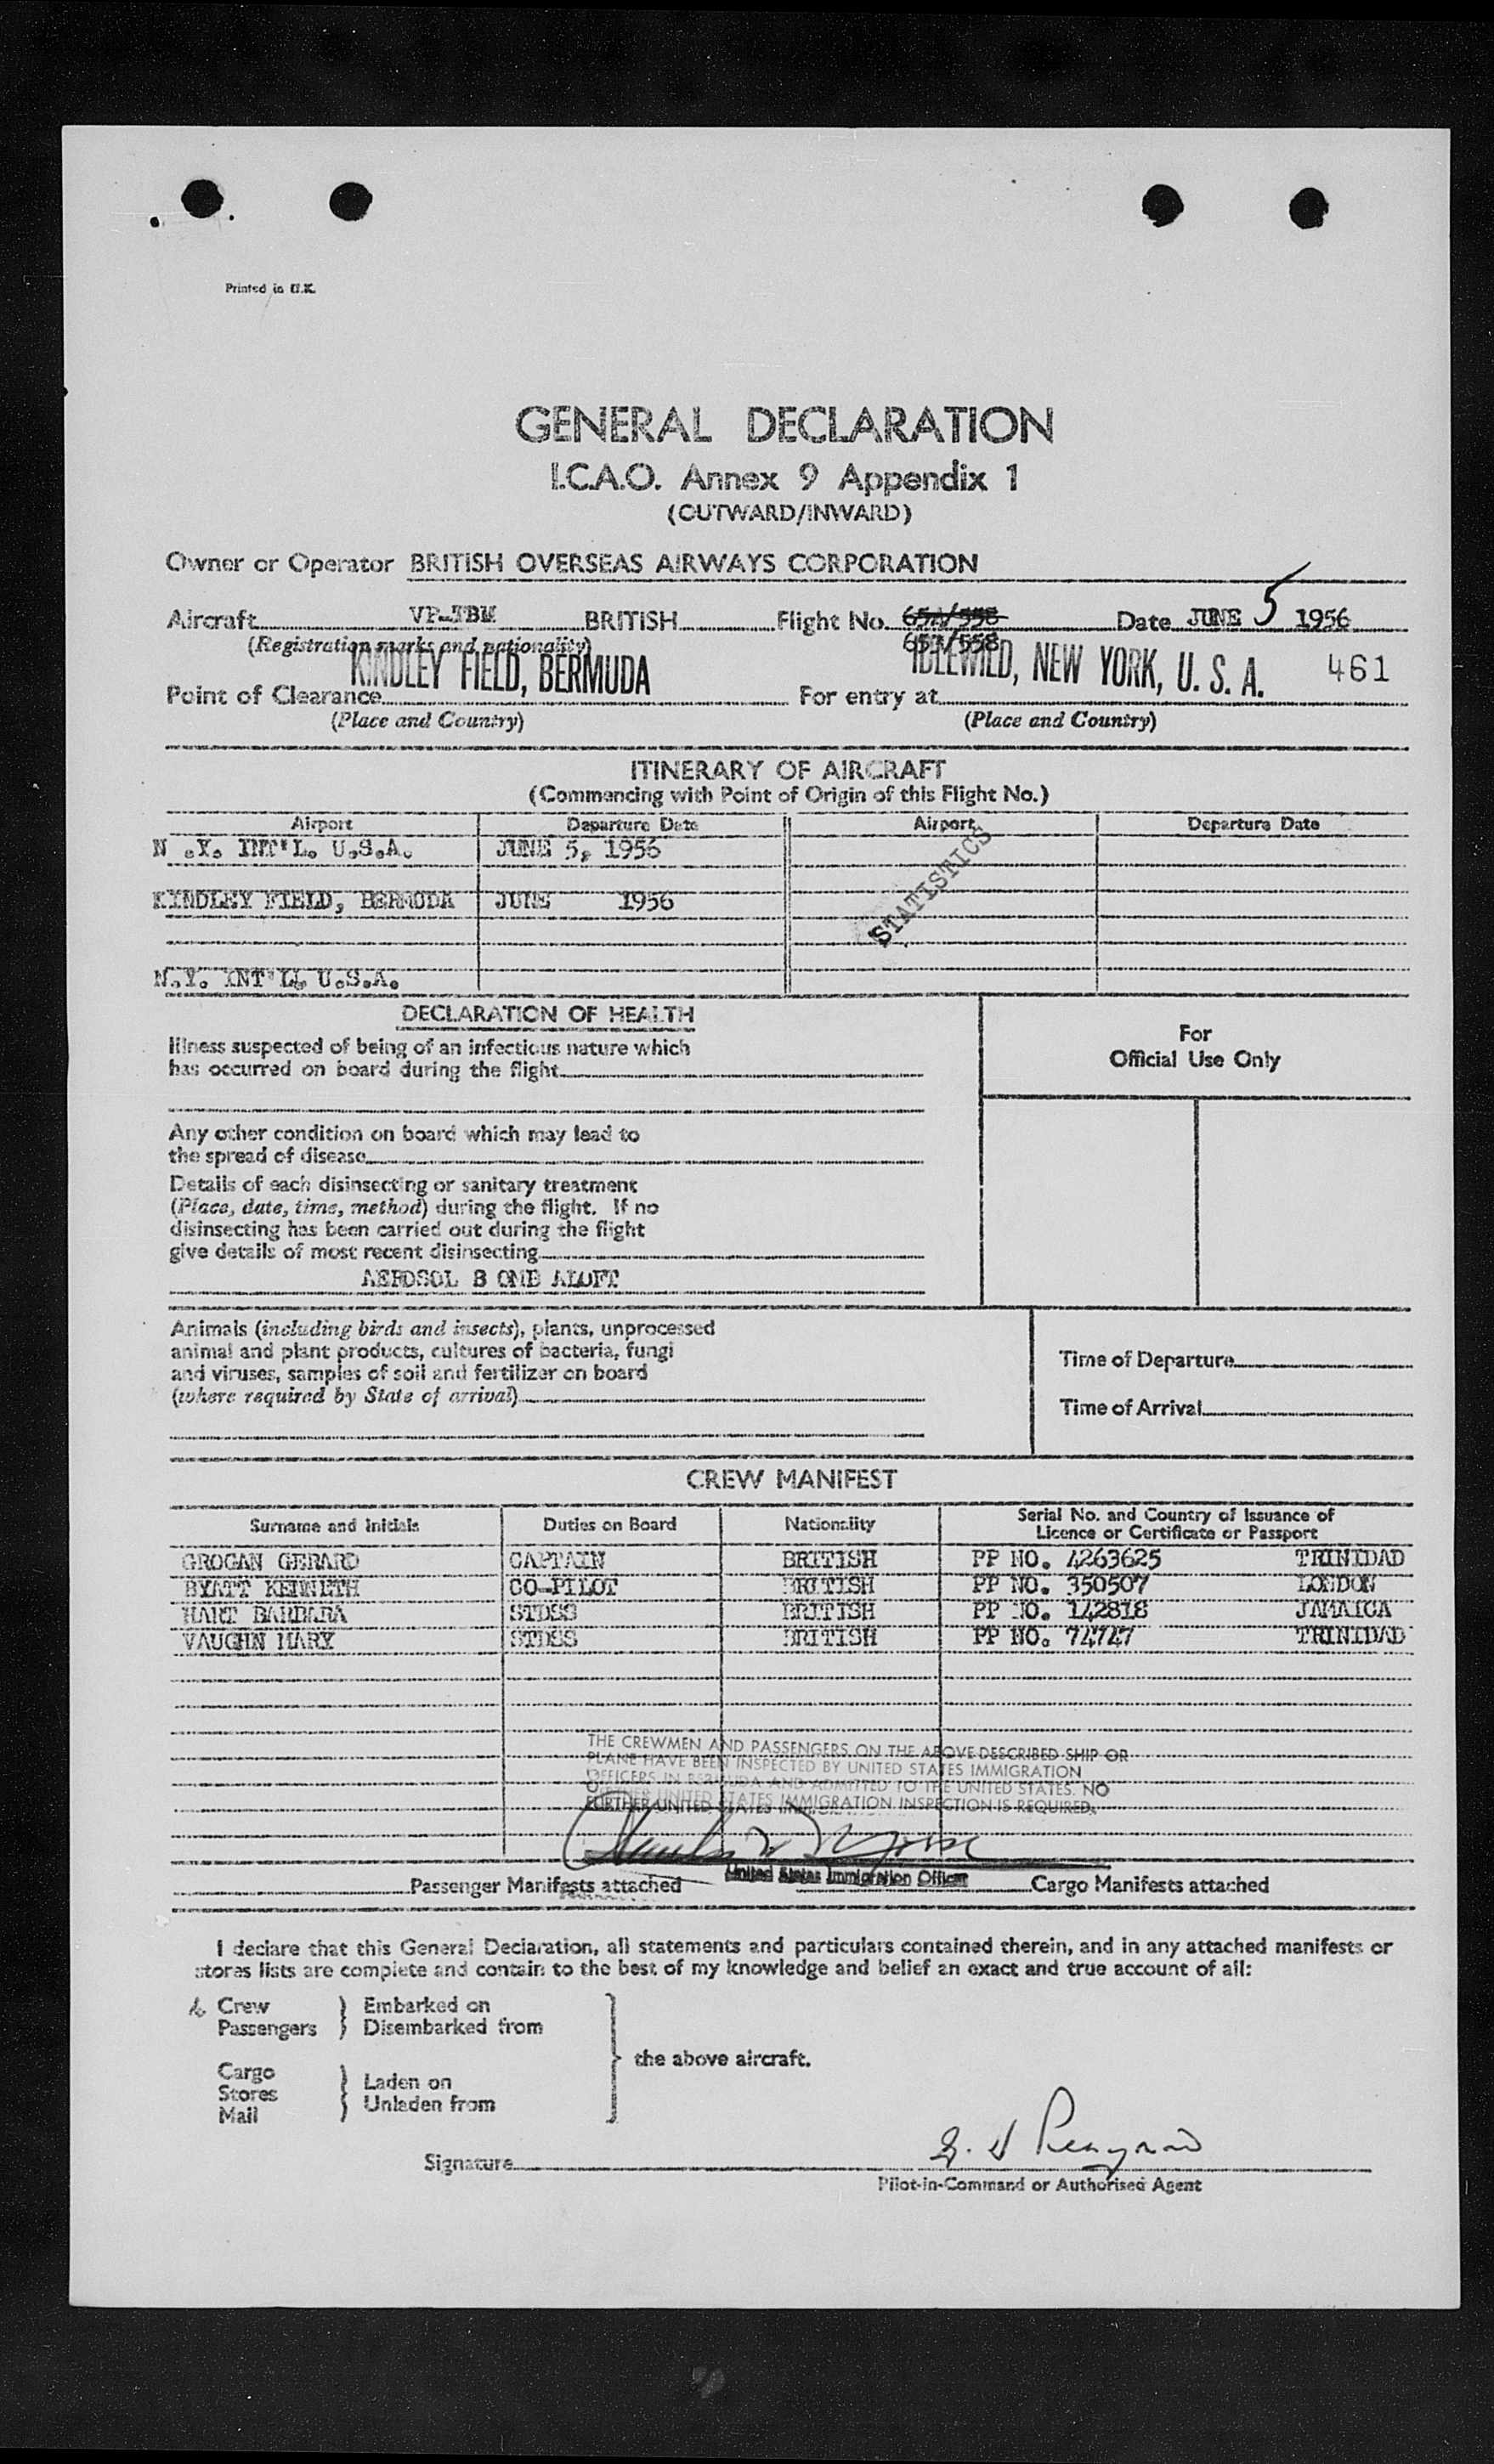 Printed in U.K.
GENERAL DECLARATION
I.C.A.O. Annex 9 Appendix 1
(OUTWARD/INWARD)
Owner or Operator BRITISH OVERSEAS AIRWAYS CORPORATION
Aircraft BRITISH Flight No. Date JUNE 5 1956
(Registration marks and nationality) /558
KINDLEY FIELD, BERMUDA IDLEWILD, NEW YORK, U. S. A. 461
Point of Clearance For entry at
(Place and Country) (Place and Country)
ITINERARY OF AIRCRAFT
(Commencing with Point of Origin of this Flight No.)
Airport Departure Date Airport Departure Date
N .Y. INT'L. U.S.A. JUNE 5, 1956
STATISTICS
KINDLEY FIELD, BERMUDA JUNE 1956
N.Y. INT'L. U.S.A.
DECLARATION OF HEALTH
For
Official Use Only
Illness suspected of being of an infectious nature which
has occurred on board during the flight
Any other condition on board which may lead to
the spread of disease
Details of each disinsecting or sanitary treatment
(Place, date, time, method) during the flight. If no
disinsecting has been carried out during the flight
give details of most recent disinsecting
AEROSOL B OMB ALOFT
Animals (including birds and insects), plants, unprocessed
animal and plant products, cultures of bacteria, fungi
and viruses, samples of soil and fertilizer on board
(where required by State of arrival)
Time of Departure
Time of Arrival
CREW MANIFEST
Surname and Initials Duties on Board Nationality Serial No. and Country of Issuance of
Licence or Certificate or Passport
GROGAN GERARD CAPTAIN BRITISH PP NO. 4263625 TRINIDAD
BYATT KENNETH CO-PILOT BRITISH PP NO. 350507 LONDON
HART BARBARA STDSS BRITISH PP NO. 142818 JAMAICA
VAUGHN MARY STDSS BRITISH PP NO. 74747 TRINIDAD
THE CREWMEN AND PASSENGERS ON THE ABOVE DESCRIBED SHIP OR
PLANE HAVE BEEN INSPECTED BY UNITED STATES IMMIGRATION
OFFICERS IN BERMUDA AND ADMITTED TO THE UNITED STATES. NO
FURTHER UNITED STATES IMMIGRATION INSPECTION IS REQUIRED.
United States Immigration Officer
Passenger Manifests attached Cargo Manifests attached
I declare that this General Declaration, all statements and particulars contained therein, and in any attached manifests or
stores lists are complete and contain to the best of my knowledge and belief an exact and true account of all:
Crew Embarked on
Passengers Disembarked from
the above aircraft.
Cargo
Stores Laden on
Mail Unladen from
Signature
Pilot-in-Command or Authorised Agent